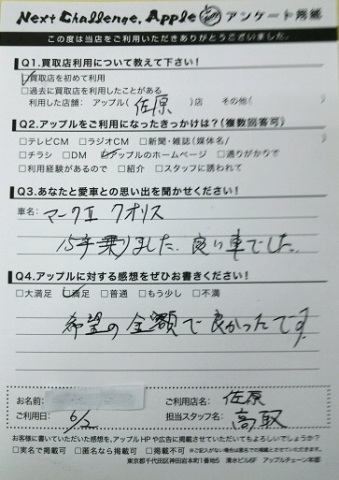 Next Challenge, Apple アンケート用紙
この度は当店をご利用いただきありがとうございました。
Q1.買取店利用について教えて下さい!
☑買取店を初めて利用
□過去に買取店を利用したことがある
利用した店舗: アップル( 佐原 )店 その他( )
Q2.アップルをご利用になったきっかけは?(複数回答可)
□テレビCM □ラジオCM □新聞・雑誌(媒体名/ )
□チラシ □DM ☑アップルのホームページ □通りがかりで
□利用経験があるので □紹介 □スタッフに誘われて
Q3.あなたと愛車との思い出を聞かせください!
車名: マークⅡ クオリス
15年乗りました。良い車でした。
Q4.アップルに対する感想をぜひお書きください!
□大満足 ☑満足 □普通 □もう少し □不満
希望の金額で良かったです!
お名前:
ご利用店名: 佐原
ご利用日: 6/2
担当スタッフ名: 高取
お客様に書いていただいた感想を、アップルHPや広告に掲載させていただいてもよろしいでしょうか?
□実名で掲載可 □匿名なら掲載可 □掲載不可 ※ご記入がない場合は匿名での掲載とさせていただきます。
東京都千代田区神田岩本町1番地5 清水ビル6F アップルチェーン本部